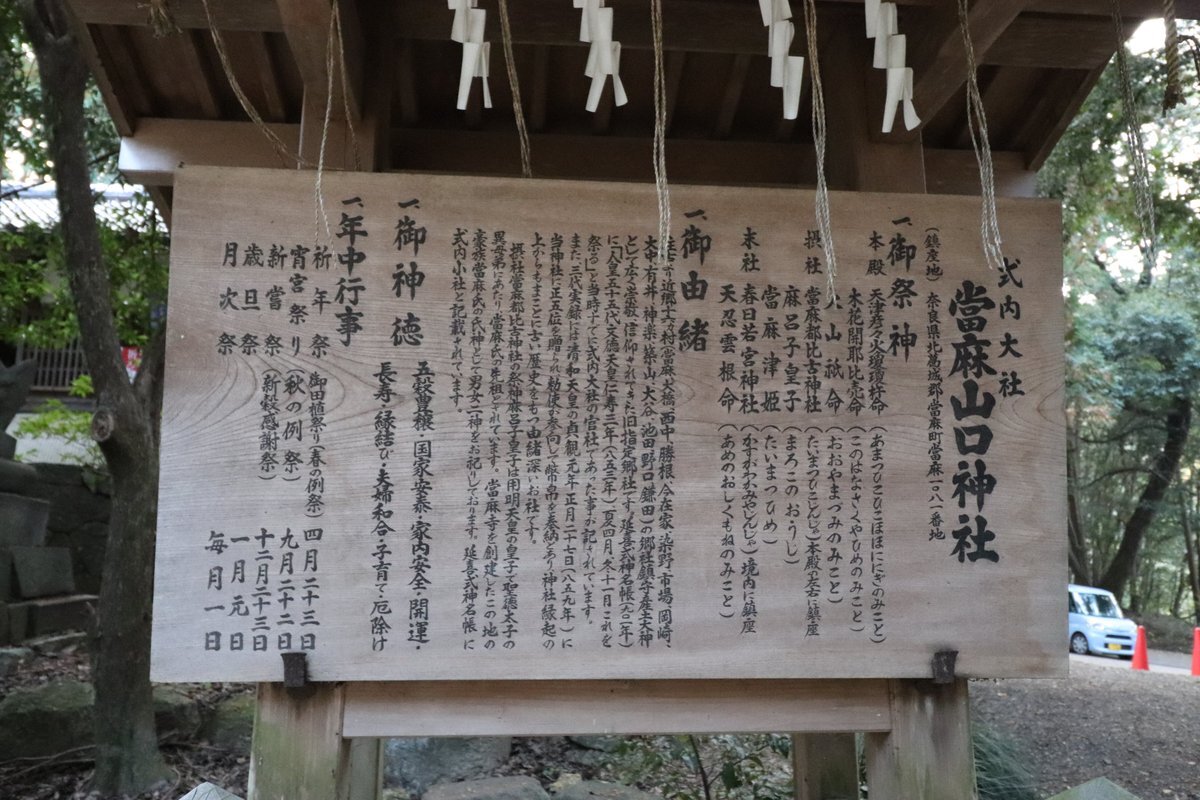 式内大社
當麻山口神社
(鎮座地) 奈良県北葛城郡當麻町當麻一〇八一番地
一、御祭神
本殿 天津彦々火瓊瓊杵命 (あまつひこひこほほににぎのみこと)
木花開耶比売命 (このはなさくやひめのみこと)
大山祇命 (おおやまづみのみこと)
摂社 當麻都比古神社 (たいまつひこじんじゃ) 本殿の左右に鎮座
麻呂子皇子 (まろこのおうじ)
當麻津姫 (たいまつひめ)
末社 春日若宮神社 (かすがわかみやじんじゃ) 境内に鎮座
天忍雲根命 (あめのおしくもねのみこと)
一、御由緒
大中・有井・神楽・築山・大谷・池田・野口・鎌田)の郷社鎮守産土大神
として広く崇敬、信仰されてきた旧指定郷社です。延喜式神名帳(九〇二年)
に「人皇五十五代文徳天皇仁寿三年(八五三年)夏四月、冬十一月これを
祭る」と当時すでに式内大社の官社であった事が記されています。
また三代実録には清和天皇の貞観元年正月二十七日(八五九年)に
当神社に正五位を贈られ勅使が参向して幣帛を奉納とあり神社縁起の
上からもまことに古い歴史をもつ由緒深いお社です。
摂社當麻都比古神社の祭神麻呂子皇子は用明天皇の皇子で聖徳太子の
異母弟にあたり、當麻氏の先祖とされています。當麻寺を創建したこの地の
豪族當麻氏の氏神として男女二神をお祀りしております。延喜式神名帳に
式内小社と記載されています。
一、御神徳
五穀豊穣・国家安泰・家内安全・開運・
長寿・縁結び・夫婦和合・子育て・厄除け
一、年中行事
祈年祭 御田植祭り(春の例祭) 四月二十三日
宵宮祭り (秋の例祭) 九月二十二日
新嘗祭 (新穀感謝祭) 十二月二十三日
歳旦祭 一月元日
月次祭 毎月一日